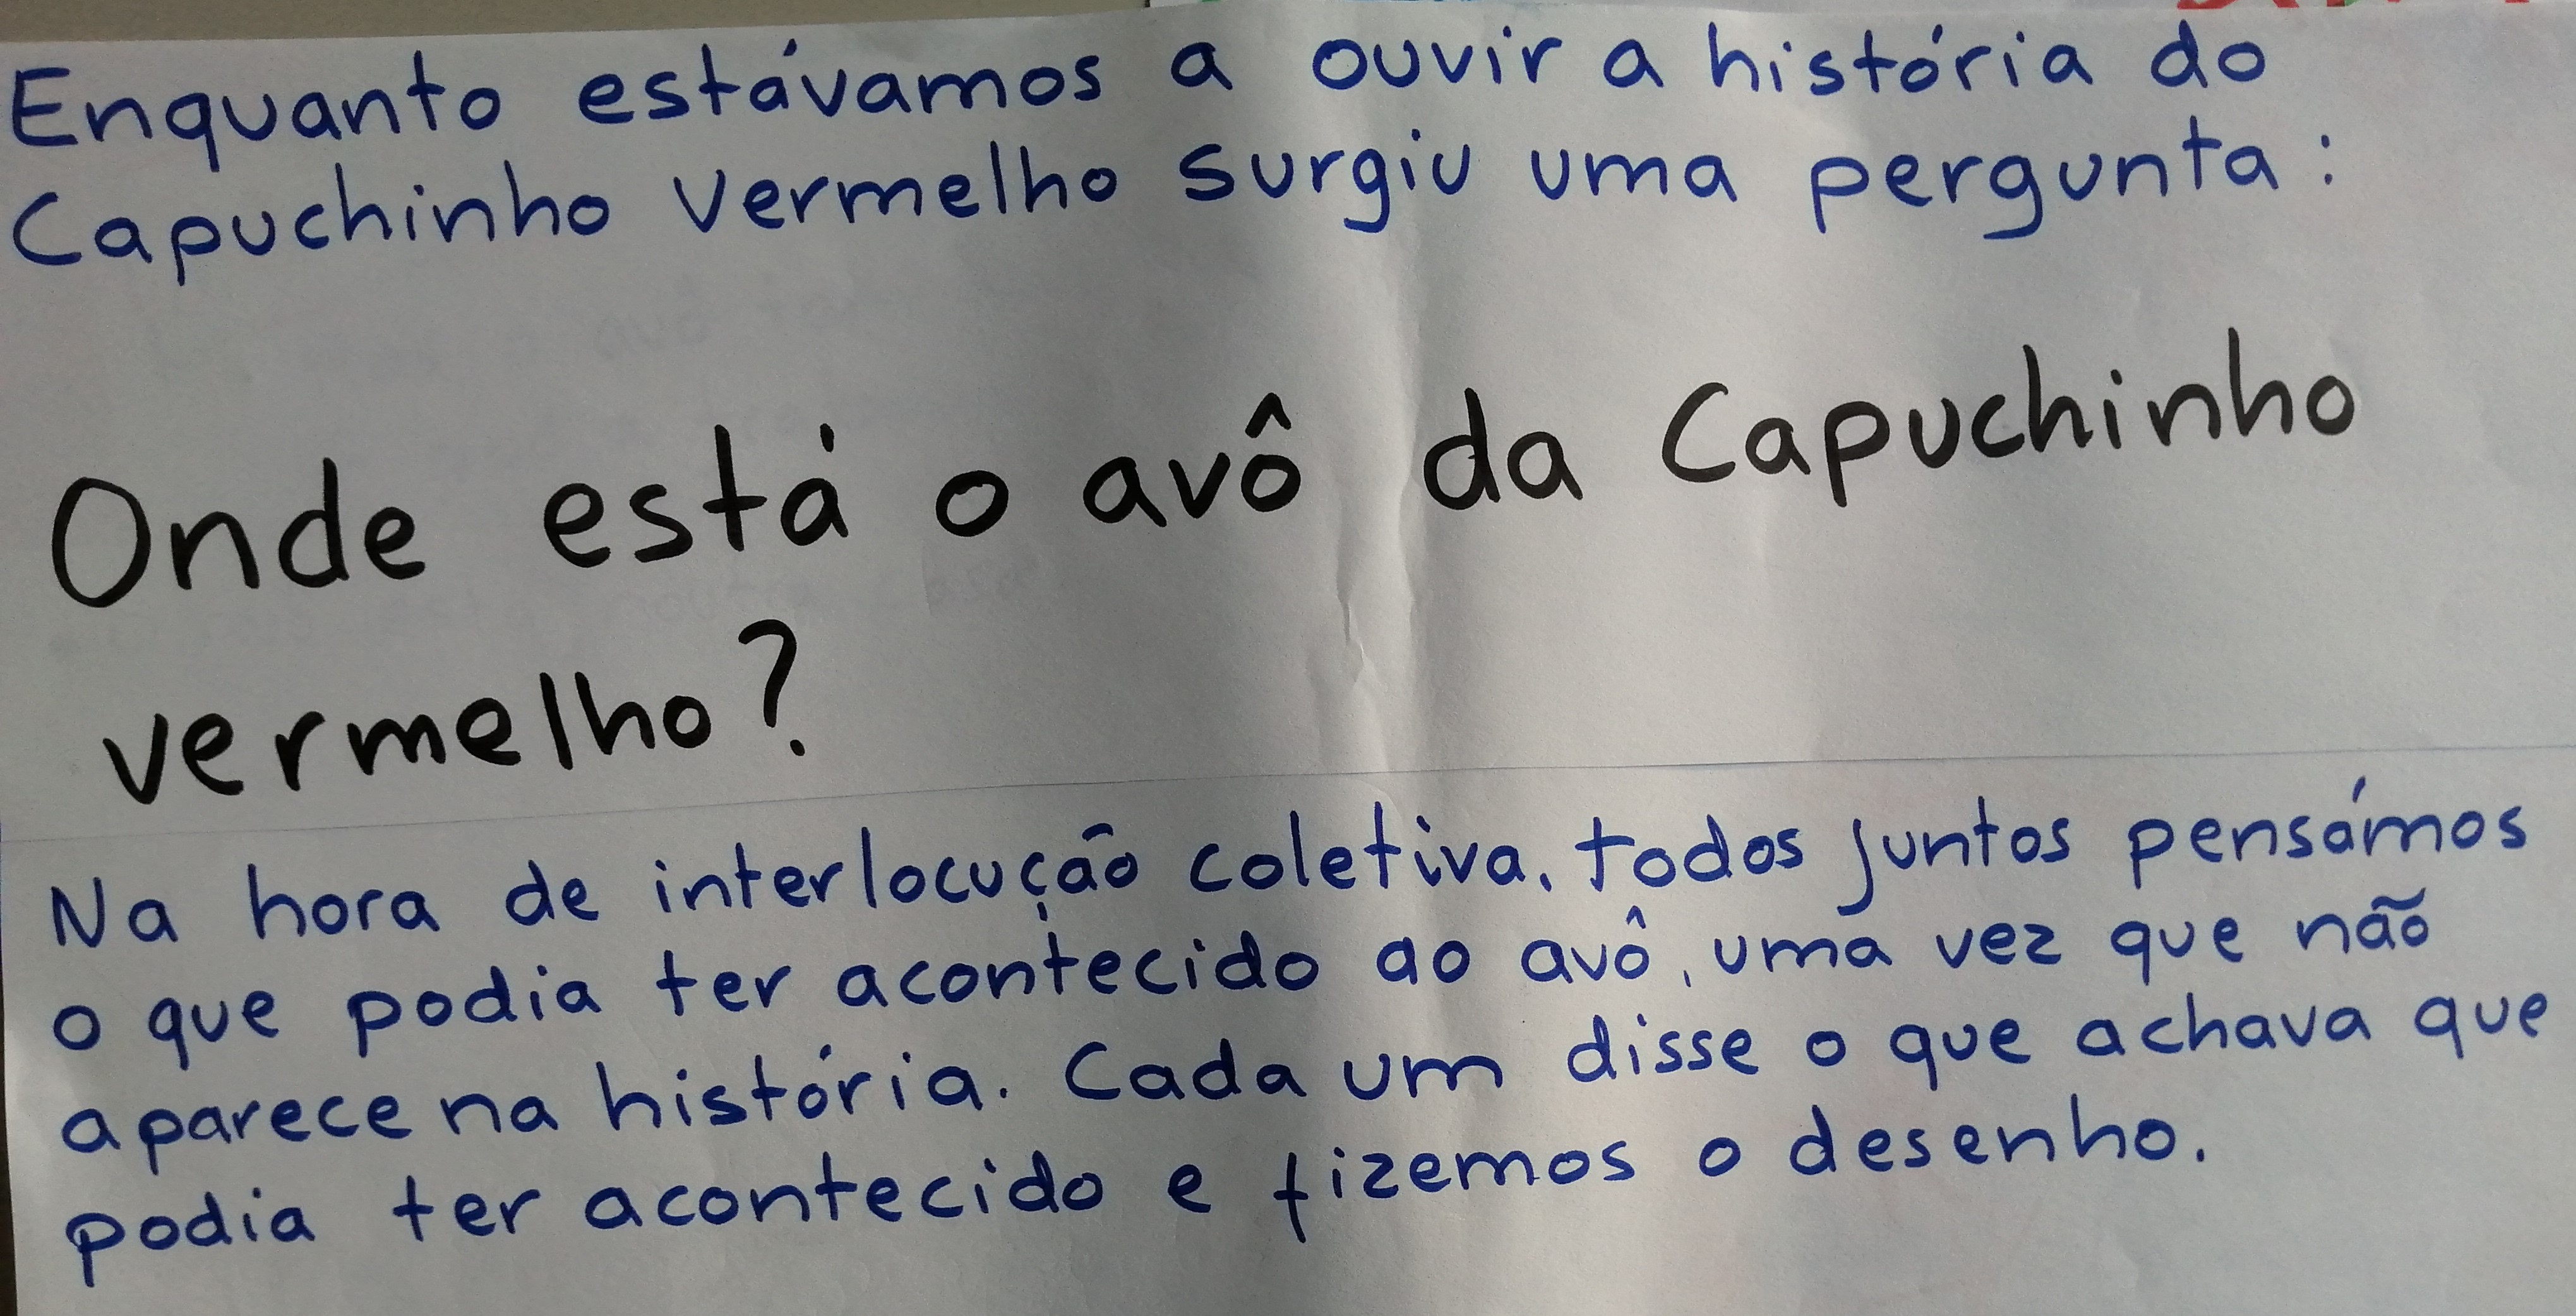 Enquanto estávamos a ouvir a história do
Capuchinho vermelho surgiu uma pergunta:
Onde está o avô da Capuchinho
vermelho?
Na hora de interlocução coletiva, todos juntos pensámos
o que podia ter acontecido ao avô, uma vez que não
aparece na história. Cada um disse o que achava que
podia ter acontecido e fizemos o desenho.